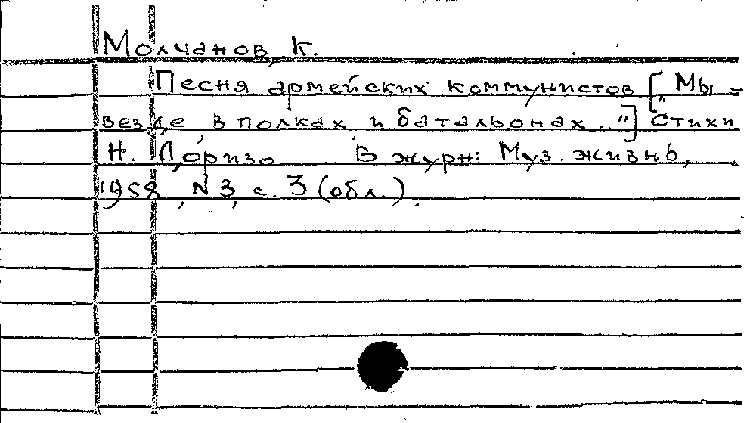 Молчанов, К.
Песня армейских коммунистов ["Мы –
везде, в полках и батальонах.."] Стихи
Н. Доризо В журн: Муз. жизнь,
1958, N3, с. 3 (обл.).